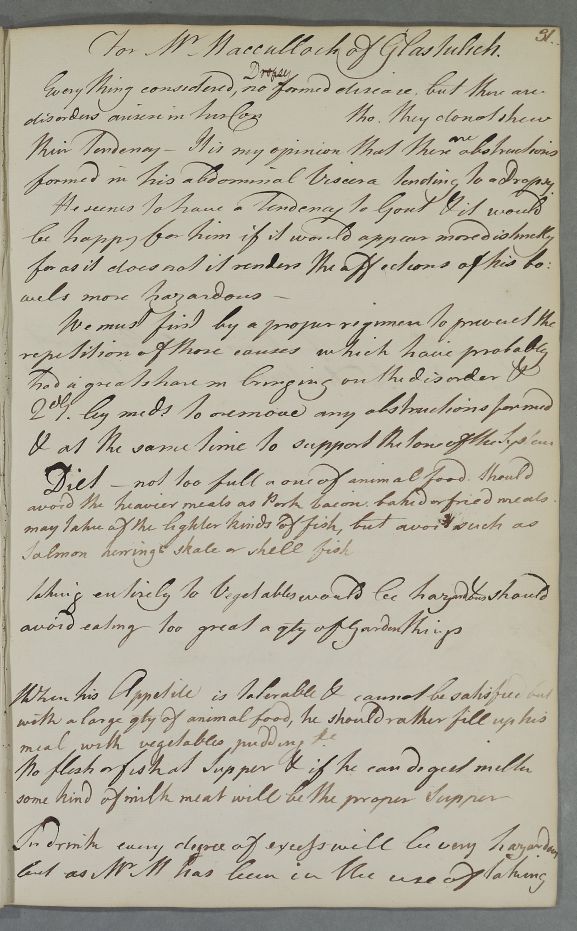 31.
For Mr Macculloch of Glastulich.
Dropsy
Every thing considered, no formed disease. but there are
disorders arisen in his Con tho. they do not shew
their Tendency – It is my opinion that there are obstructions
formed in his abdominal Viscera tending to a Dropsy
He seems to have a Tendency to Gout & it would
be happy for him if it would appear more distinctly
for as it does not it renders the affections of his bo:
wels more hazardous –
We must first by a proper regimen to prevent the
repetition of those causes which have probably
had a great share in bringing on the disorder &
2dly. by meds. to remove any obstructions formed
& at the same time to support the tone of the System
Diet – not too full a one of animal food. should
avoid the heavier meals as Pork bacon, baked or fried meals.
may take of the lighter kinds of fish, but avoid such as
Salmon herrings skate or shell fish
taking entirely to Vegetables would be hazardous & should
avoid eating too great a qty of Garden things
When his Appetite is tolerable & cannot be satisfied but
with a large qty of animal food, he should rather fill up his
meal with vegetables pudding &c
No flesh or fish at Supper & if he can digest milk
some kind of milk meat will be the proper Supper
In drink every degree of excess will be very hazardous
but as Mr M has been in the use of taking